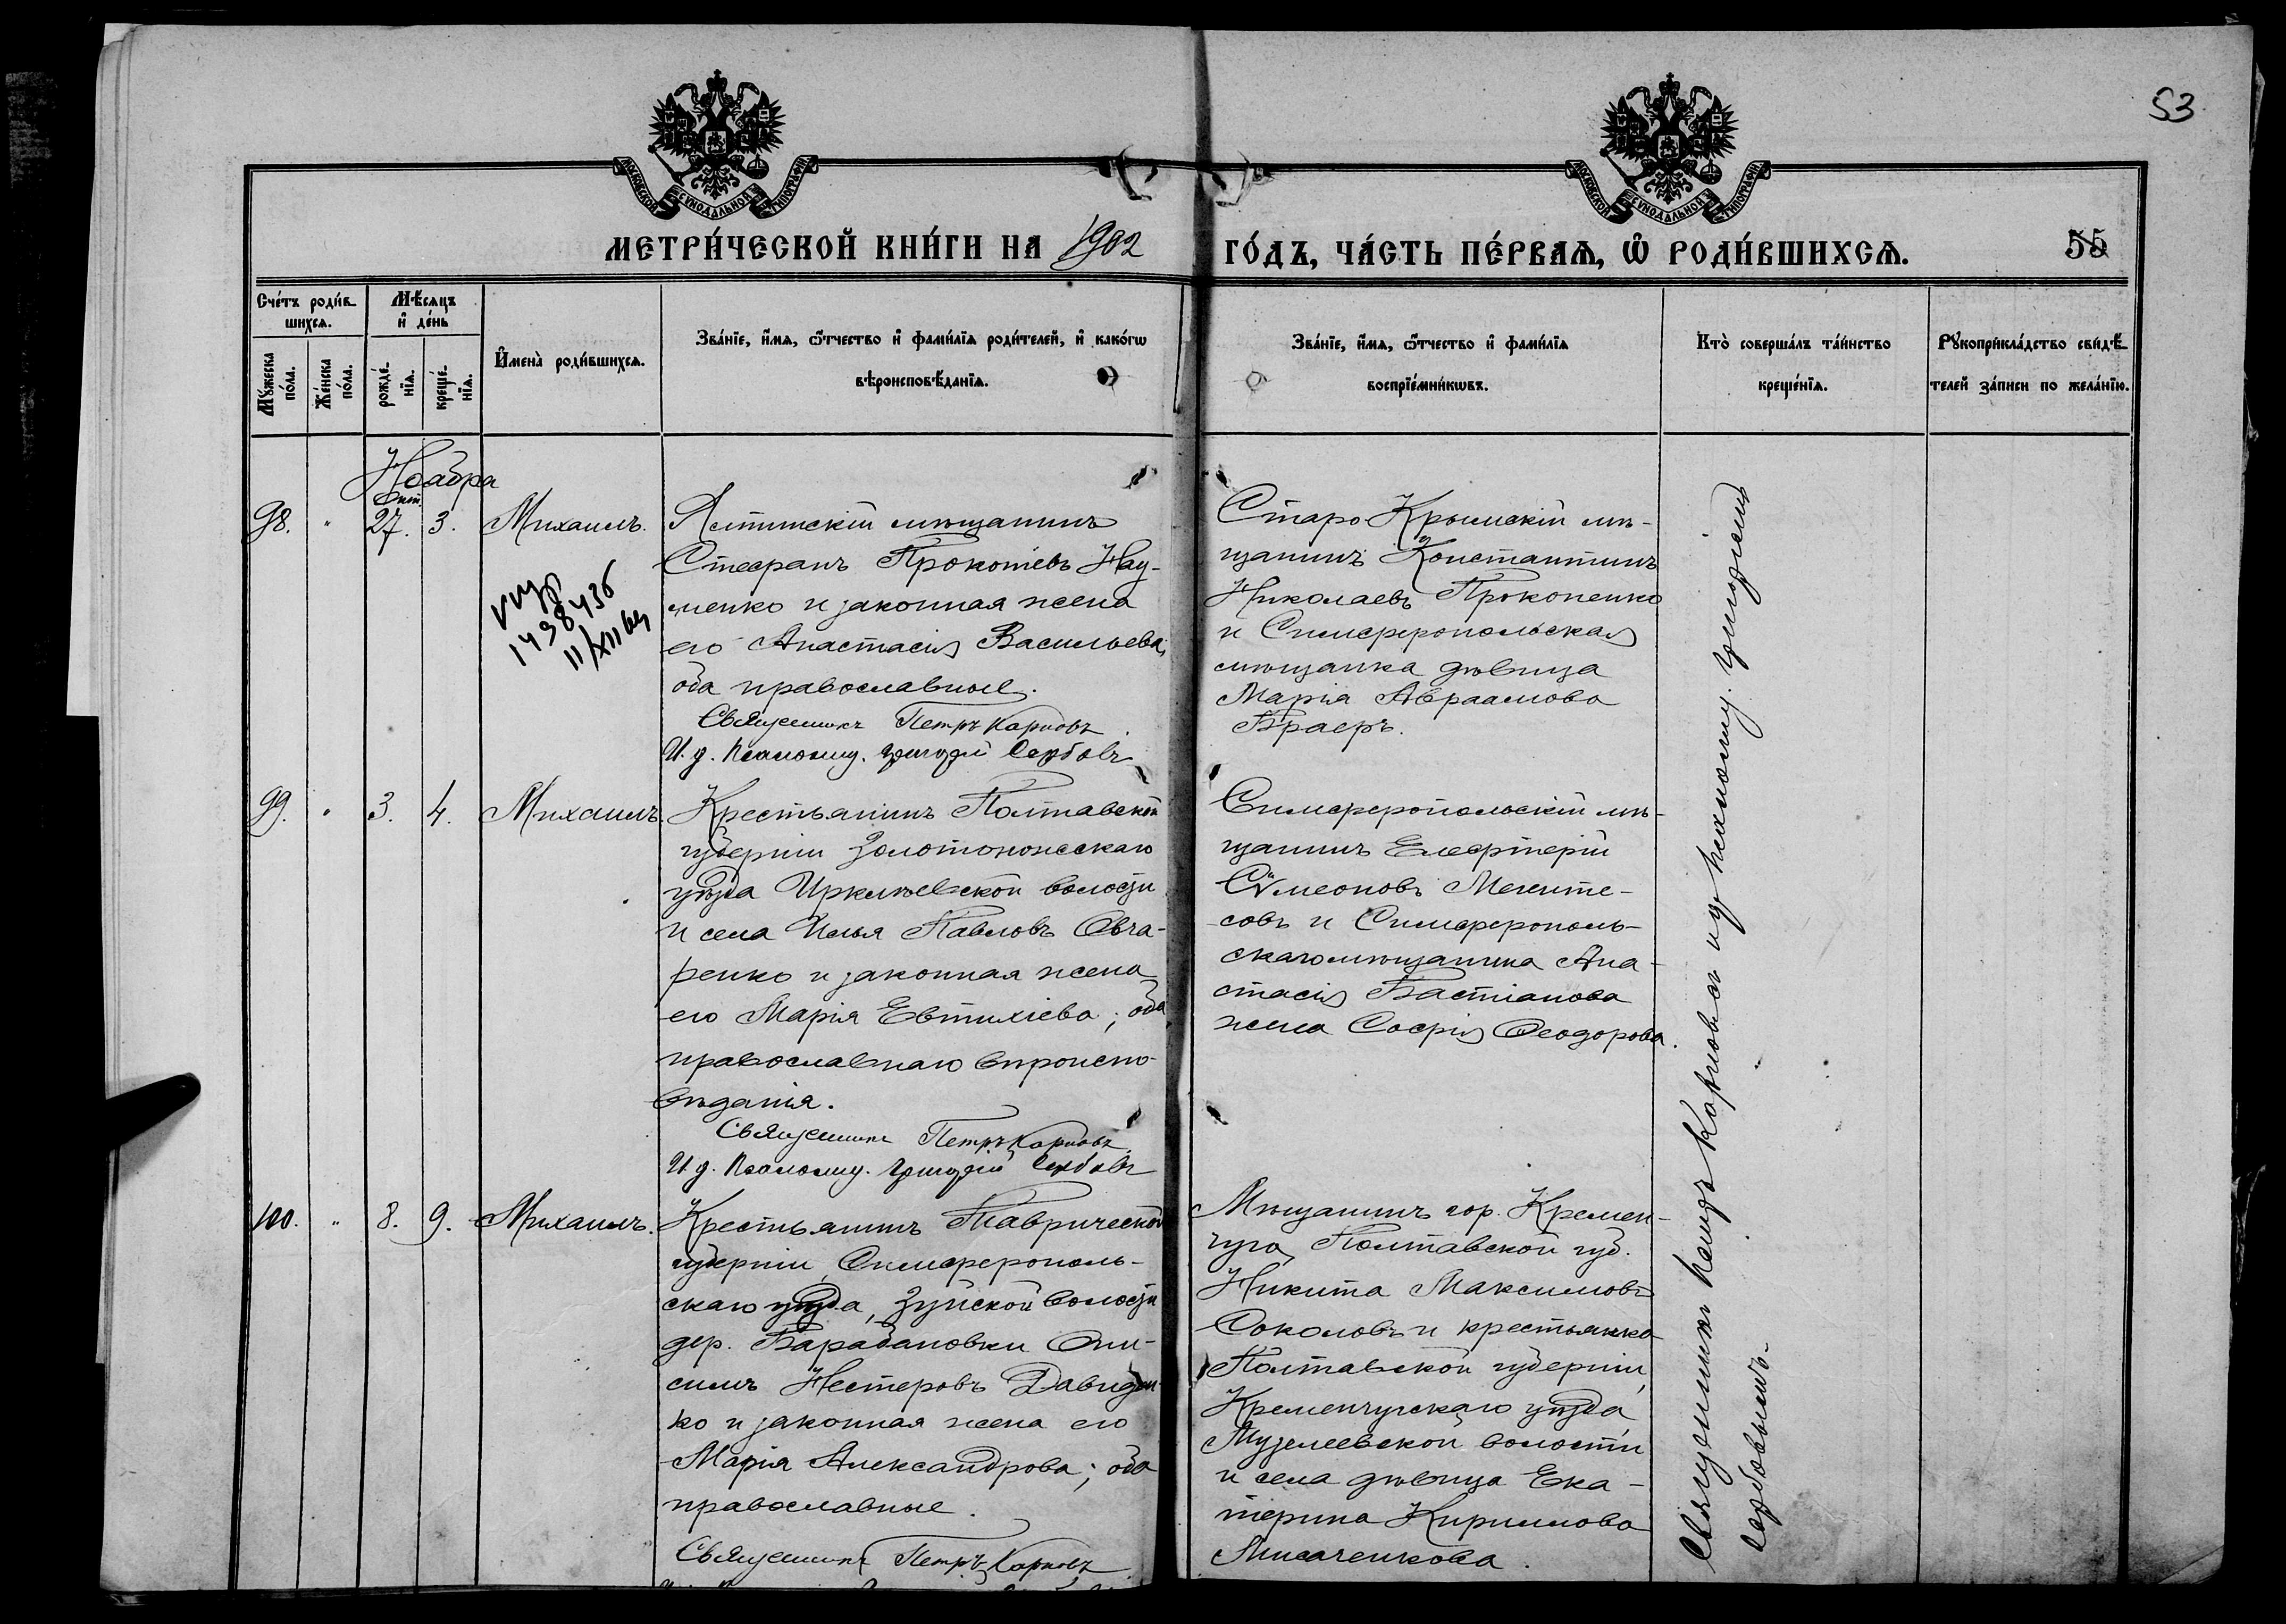 53
МОСКОВСКОЙ СѴНОДАЛЬНОЙ ТИПОГРАФІИ
МОСКОВСКОЙ СѴНОДАЛЬНОЙ ТИПОГРАФІИ
МЕТРИ́ЧЕСКОЙ КНИ́ГИ НА 1902
ГО́ДЪ, ЧА́СТЬ ПЕ́РВАѦ, Ѡ҆ РОДИ́ВШИХСѦ.
55
Сче́тъ роди́в-
шихсѧ.
Мꙋ́жеска
по́ла.
Же́нска
по́ла.
Мѣ́сѧцъ
и҆ де́нь
рожде́-
нїѧ.
креще́-
нїѧ.
И҆мена̀ роди́вшихсѧ.
Зва́нїе, и҆́мѧ, ѻ҆́тчество и҆ фами́лїѧ роди́телей, и҆ како́гѡ
вѣроисповѣ́данїѧ.
Зва́нїе, и҆́мѧ, ѻ҆́тчество и҆ фами́лїѧ
воспрїе́мникѡвъ.
Кто̀ соверша́лъ та́инство
креще́нїѧ.
Рꙋкоприкла́дство свидѣ́-
телей за́писи по жела́нїю.
Ноября
Окт.
98. " 27. 3. Михаилъ.
Ялтинскій мѣщанинъ
Стефанъ Прокопіевъ Нау-
менко и законная жена
его Анастасія Васильева,
оба православные.
Священникъ Петръ Карповъ
И. д. псаломщ. Григорій Сербовъ
1498436
11/XII 64
Старо-Крымскій мѣ-
щанинъ Константинъ
Николаевъ Прокопенко
и Симферопольская
мѣщанка дѣвица
Марія Авраамова
Браеръ.
99. " 3. 4. Михаилъ.
Крестьянинъ Полтавской
губерніи Золотоношскаго
уѣзда Ирклѣевской волости
и села Илья Павловъ Овча-
ренко и законная жена
его Марія Евтихіева; оба
православнаго вѣроиспо-
вѣданія.
Священникъ Петръ Карповъ
И. д. Псаломщ. Григорій Сербовъ
Симферопольскій мѣ-
щанинъ Елефтерій
Сѵмеоновъ Меките-
совъ и Симферополь-
скаго мѣщанина Ана-
стасія Бастіанова
жена Софія Ѳеодорова.
100. " 8. 9. Михаилъ.
Крестьянинъ Таврической
губерніи, Симферополь-
скаго уѣзда, Зуйской волости
дер. Барабановки Они-
симъ Нестеровъ Давиден-
ко и законная жена его
Марія Александрова; оба
православные.
Священникъ Петръ Карповъ
Мѣщанинъ гор. Кремен-
чуга, Полтавской губ.
Никита Максимовъ
Соколовъ и крестьянка
Полтавской губерніи,
Кременчугскаго уѣзда,
Музелеевской волости
и села дѣвица Ека-
терина Кириллова
Лисаченкова.
Священникъ Петръ Карповъ съ и. д. псаломщ. Григоріемъ
Сербовымъ.